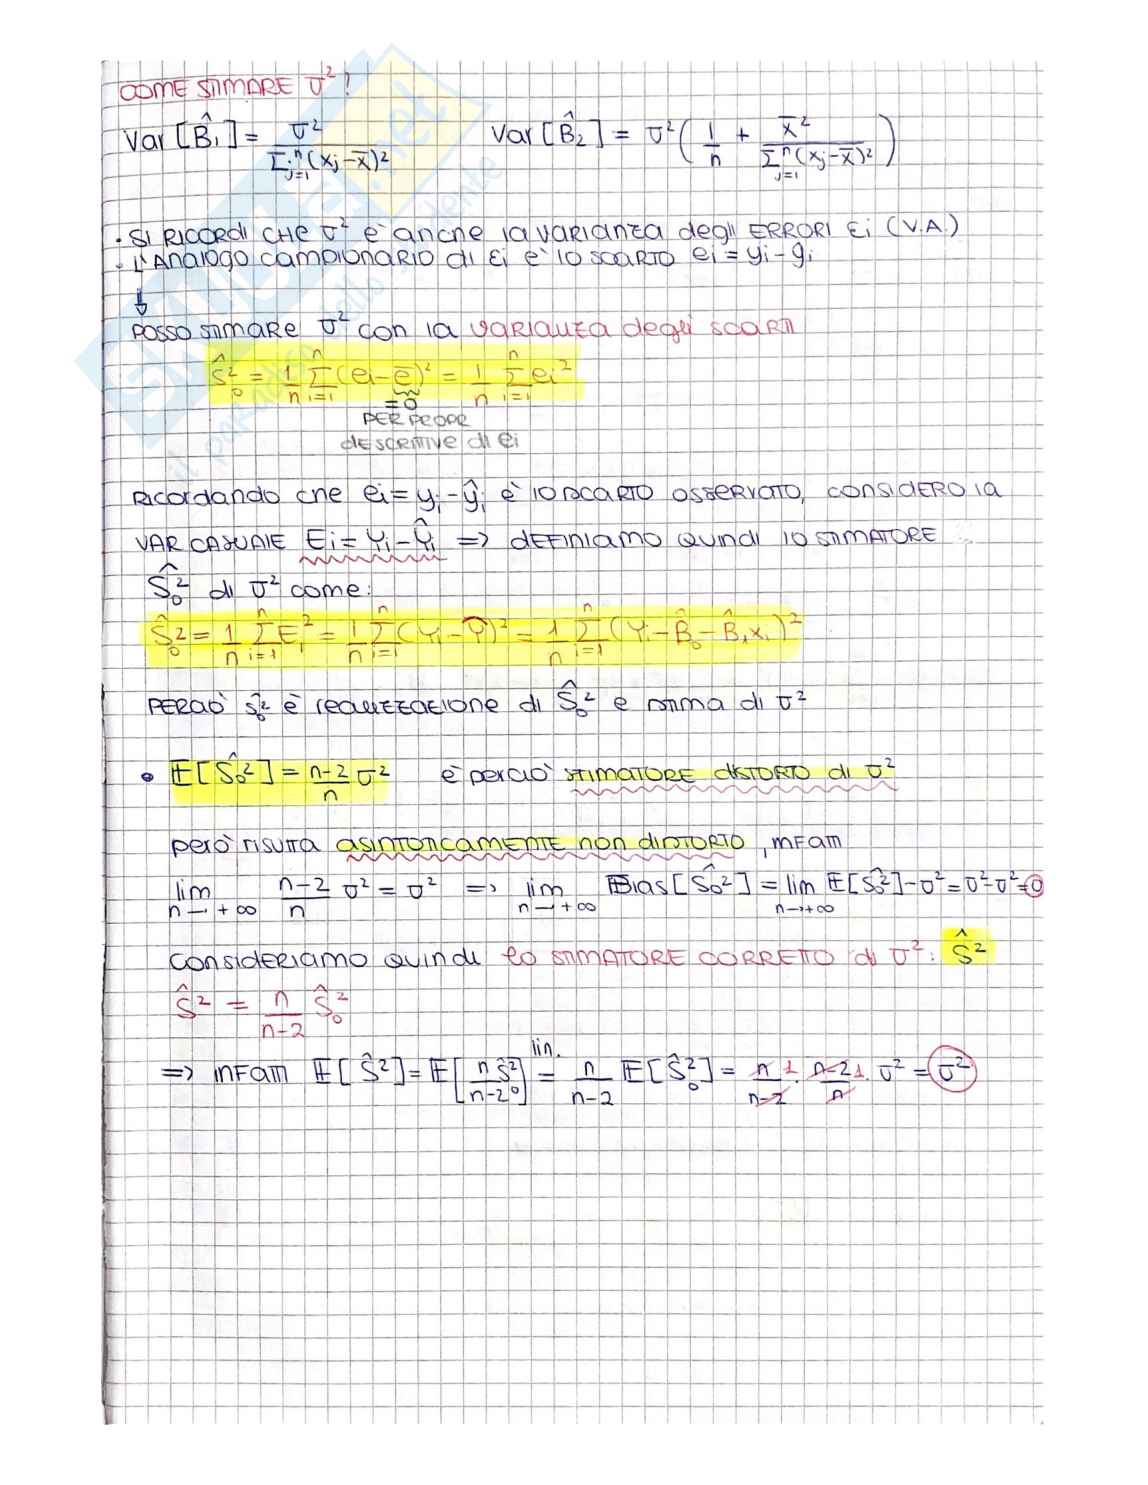 COME STIMARE σ²?
Var[B̂₁] = σ² / Σⁿⱼ₌₁(xⱼ-x̄)²   Var[B̂₂] = σ²(1/n + x̄² / Σⁿⱼ₌₁(xⱼ-x̄)²)
• SI RICORDI CHE σ² è anche la VARIANZA degli ERRORI Ei (V.A.)
• L'ANALOGO CAMPIONARIO DI Ei è lo SCARTO ei = yi - ŷi
↓
POSSO STIMARE σ² con la VARIANZA degli SCARTI
ŝ²₀ = 1/n Σⁿᵢ₌₁(ei-ē)² = 1/n Σⁿᵢ₌₁ ei²
=0
PER PROPR
DESCRITTIVE di ei
RICORDANDO che ei = yi - ŷi è lo SCARTO OSSERVATO, CONSIDERO la
VAR CASUALE Ei = Yi - Ŷi => DEFINIAMO QUINDI lo STIMATORE
Ŝ²₀ di σ² come:
Ŝ²₀ = 1/n Σⁿᵢ₌₁ Ei² = 1/n Σⁿᵢ₌₁(Yi - Ŷ)² = 1/n Σⁿᵢ₌₁(Yi - B̂₀ - B̂₁xi)²
PERCIÒ ŝ²₀ è realizzazione di Ŝ²₀ e stima di σ²
• E[Ŝ₀²] = n-2/n σ²   è perciò STIMATORE DISTORTO di σ²
però risulta ASINTOTICAMENTE non DISTORTO, INFATTI
lim n→+∞ n-2/n σ² = σ² => lim n→+∞ Bias[Ŝ₀²] = lim n→+∞ E[Ŝ₀²] - σ² = σ²-σ² = 0
CONSIDERIAMO QUINDI lo STIMATORE CORRETTO di σ²: Ŝ²
Ŝ² = n/n-2 Ŝ²₀
=> INFATTI E[Ŝ²] = E[n/n-2 Ŝ²₀] lin. = n/n-2 E[Ŝ²₀] = n/n-2 1 · n-2/n 1 · σ² = σ²